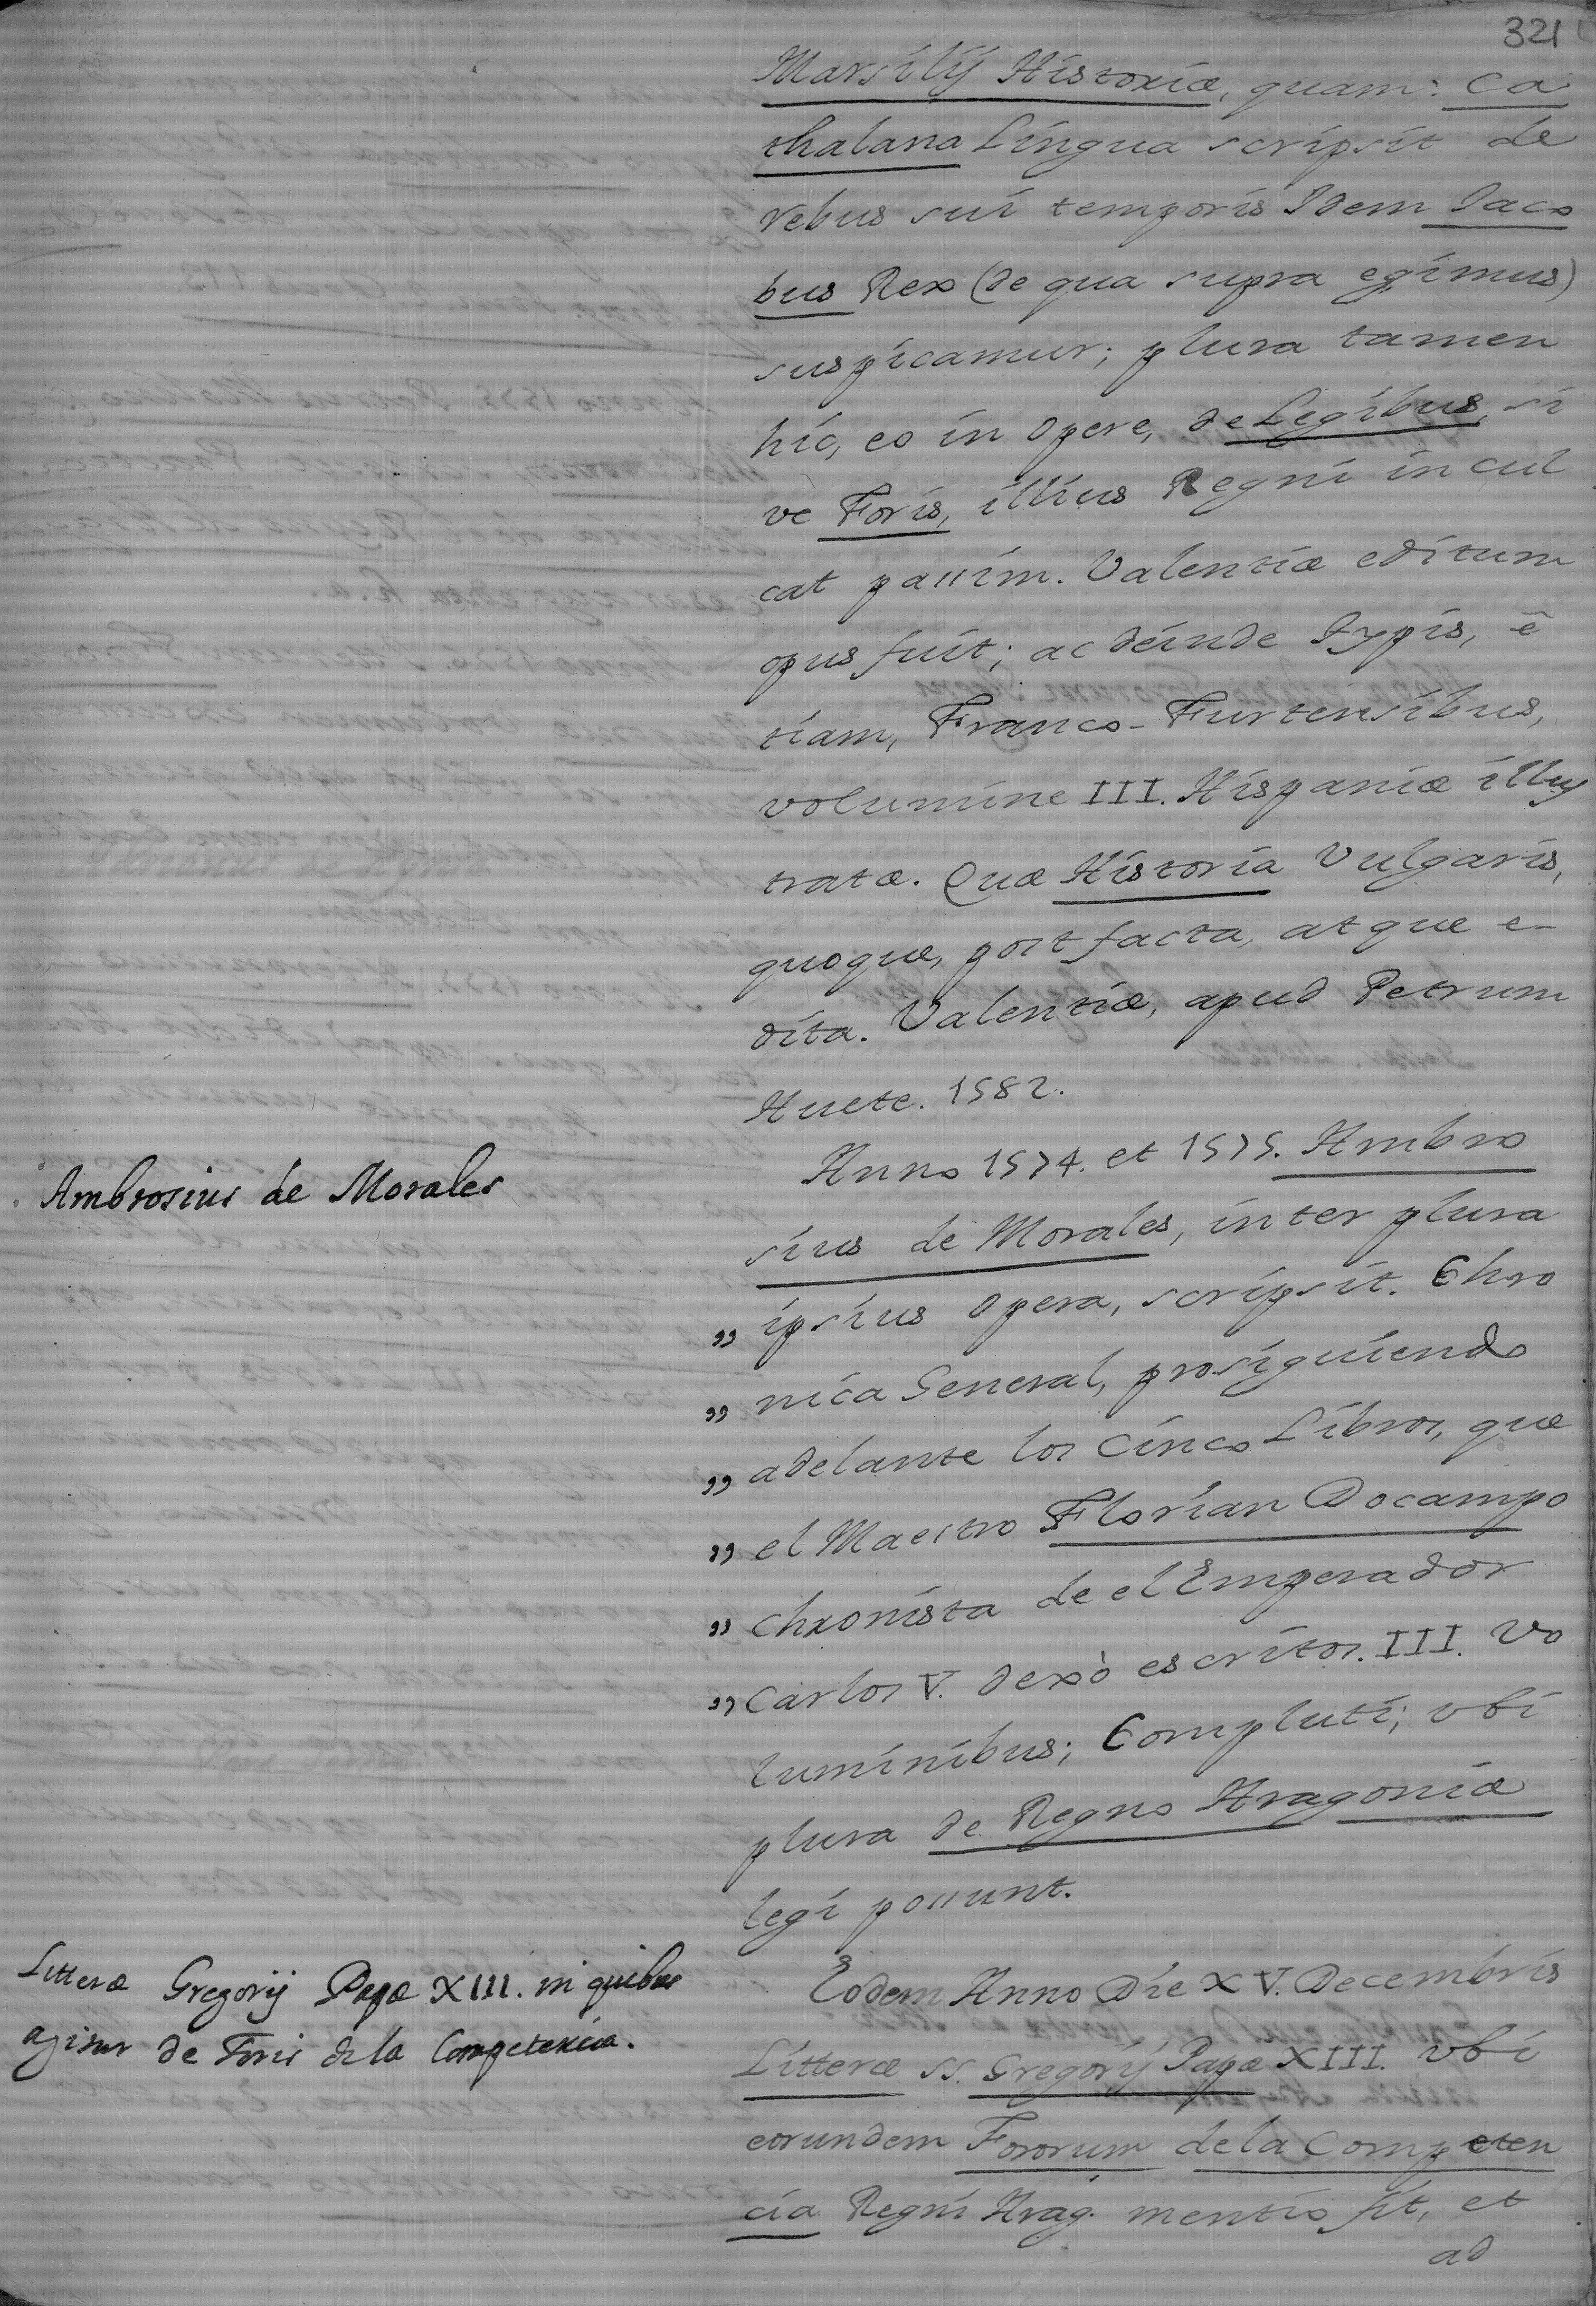 321
Marsilij Historiæ, quam: Ca
thalana Lingua scripsit de
rebus sui temporis Idem Iaco
bus Rex (de qua supra egimus)
suspicamur; plura tamen
hic, eo in opere, de Legibus, si
vè Foris, illius Regni incul
cat passim. Valentiæ editum
opus fuit; ac deinde Typis, e
tiam, Franco-Furtensibus,
volumine III. Hispaniæ illus
tratæ. Quæ Historia Vulgaris,
quoque, post facta, atque e-
dita. Valentiæ, apud Petrum
Huete. 1582.
Ambrosius de Morales
Anno 1574. et 1575. Ambro
sius de Morales, inter plura
„ ipsius opera, scripsit. Chro
„ nica General, prosiguiendo
„ adelante los Cinco Libros, que
„ el Maestro Florian Docampo
„ Chronista de el Emperador
„ Carlos V. dexò escritos. III. vo
luminibus; Compluti; vbi
plura de Regno Aragoniæ
legi possunt.
Litteræ Gregorij Papæ XIII. in quibus
agitur de Foris de la Competencia.
Eodem Anno Die XV. Decembris
Litteræ SS. Gregorij Papæ XIII. vbi
eorundem Fororum de la Competen
cia Regni Arag. mentio fit, et
ad